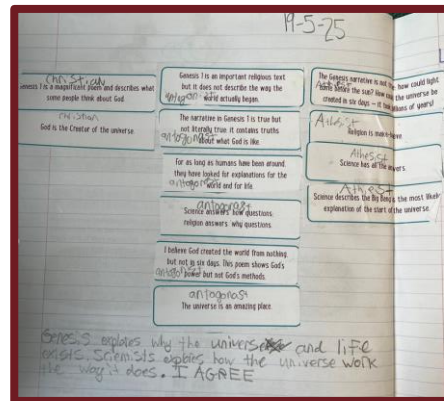 19-5-25
Christian
Genesis 1 is a magnificent poem and describes what
some people think about God.
christian
God is the Creator of the universe.
Genesis 1 is an important religious text
but it does not describe the way the
world actually began.
The narrative in Genesis 1 is true but
not literally true: it contains truths
about what God is like.
For as long as humans have been around,
they have looked for explanations for the
world and for life.
antogonast
Science answers 'how' questions:
religion answers 'why' questions.
I believe God created the world from nothing
but not in six days. This poem shows God's
power but not God's methods.
antogonast
The universe is an amazing place.
The Genesis narrative is not
how could light
before the sun? How could the universe be
created in six days – it
billions of years!
Atheist
Religion is
Atheist
Science has all the
Athiest
Science describes the Big Bang is the most likely
explanation of the start of the universe.
Genesis explores why the universe and life
exists. Scientists explores how the universe work
the way it does. I AGREE